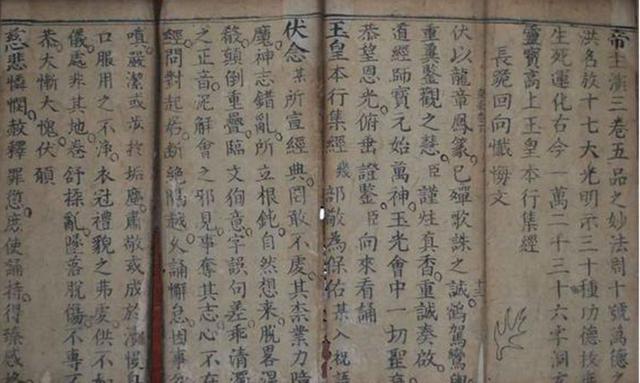 帝上演三卷五品之妙法則十號萬德之
洪名放十七大光明示三十種功德校
生死運化古今一萬二千三十六字洞
靈寶高上玉皇本行集經
長跪回向懺悔文
伏以龍章鳳篆已殫歌誅之誠鶴駕鸞
重冀鑒觀之慧臣謹炷真香重誠奏啟
道經師寶元始萬神玉光會中一切聖
恭望恩光俯垂證鑒臣向來看誦
玉皇本行集經幾部敬為保佑某入祝語
伏念某所宣經典罔敢不虔其柰業力障
魔神志錯亂所立根鈍自然想來脫畧混
殽顛倒重疊臨文徇意字誤句差乖清濁
之正音泥解會之邪見事奪其志心不在
經問對起居斷絕隔越久誦懈怠因事
嗔嚴潔或汝於垢塵肅敬或成於慢
口服用之不淨衣冠禮貌之弗虔供不如
儀處非其地卷舒揉亂墜落脫傷不專
恭大慚大愧伏願
慈悲憐憫赦釋罪愆庶使誦持得臻感格